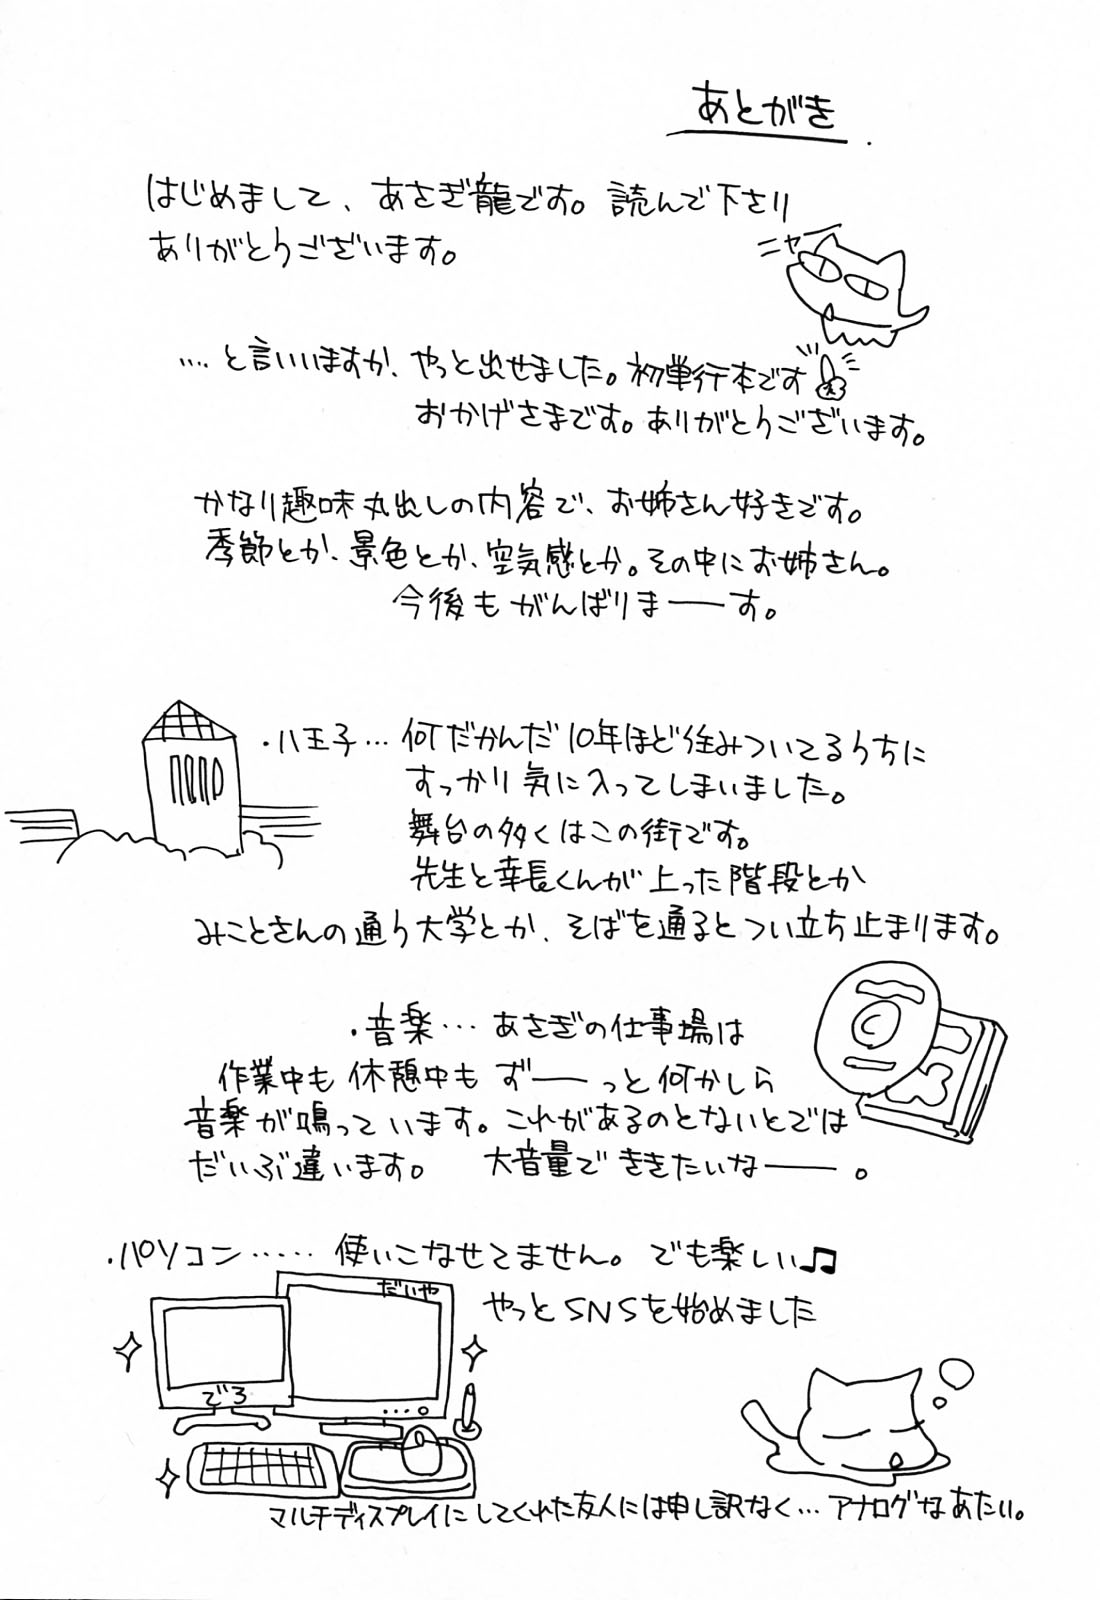 あとがき
はじめまして、あさぎ龍です。読んで下さり
ありがとうございます。
ニャー
‥‥と言いいますか、やっと出せました。初単行本です
おかげさまです。ありがとうございます。
かなり趣味丸出しの内容で、お姉さん好きです。
季節とか、景色とか、空気感とか。その中にお姉さん。
今後もがんばりまーーす。
・八王子…何だかんだ10年ほど住みついてるうちに
すっかり気に入ってしまいました。
舞台の多くはこの街です。
先生と幸長くんが上った階段とか
みことさんの通う大学とか、そばを通るとつい立ち止まります。
・音楽…あさぎの仕事場は
作業中も休憩中もずーーっと何かしら
音楽が鳴っています。これがあるのとないとでは
だいぶ違います。 大音量でききたいなーー。
・パソコン‥‥‥使いこなせてません。でも楽しい♫
やっとSNSを始めました
だいや
でろ
マルチディスプレイにしてくれた友人には申し訳なく…アナログなあたい。